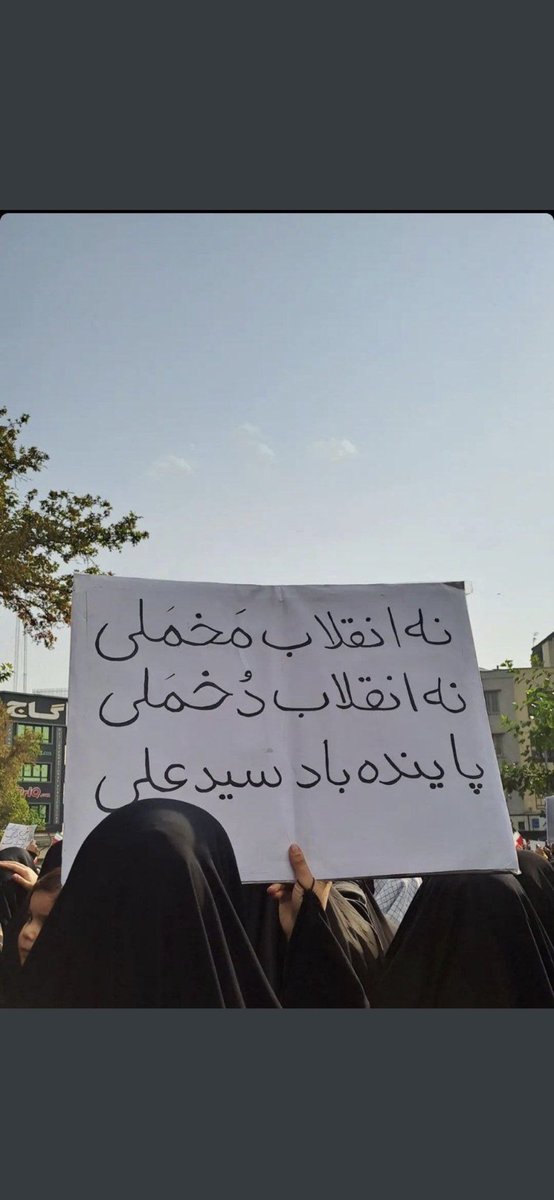 نه انقلاب مَخمَلی
نه انقلاب دُخمَلی
پاینده باد سید علی
گاج